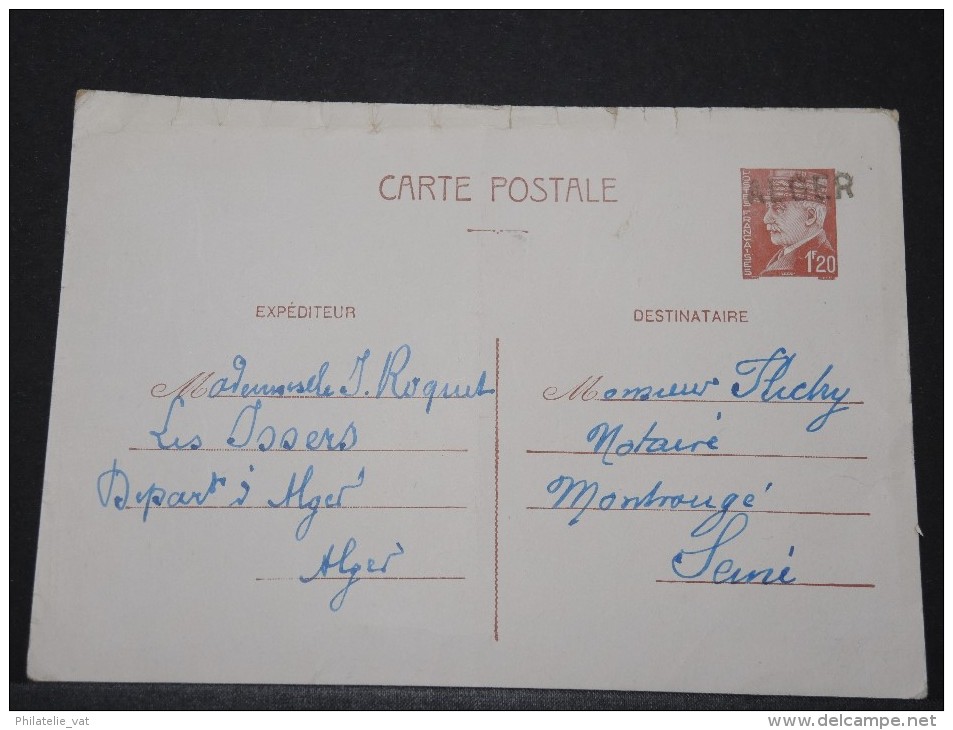 CARTE POSTALE
ALGER
POSTES FRANÇAISES
1F20
EXPÉDITEUR
Mademoiselle J. Roquet
Les Issers
Depart d'Alger
Alger
DESTINATAIRE
Monsieur Flichy
Notaire
Montrouge
Seine
Philatelie_vat
http://www.delcampe.net